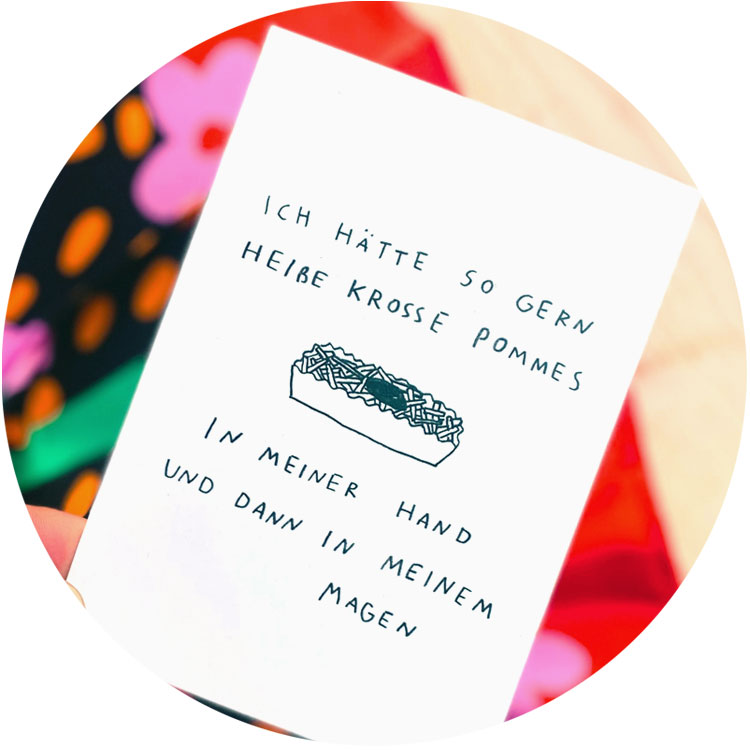 ICH HÄTTE SO GERN
HEIßE KROSSE POMMES
IN MEINER HAND
UND DANN IN MEINEM
MAGEN